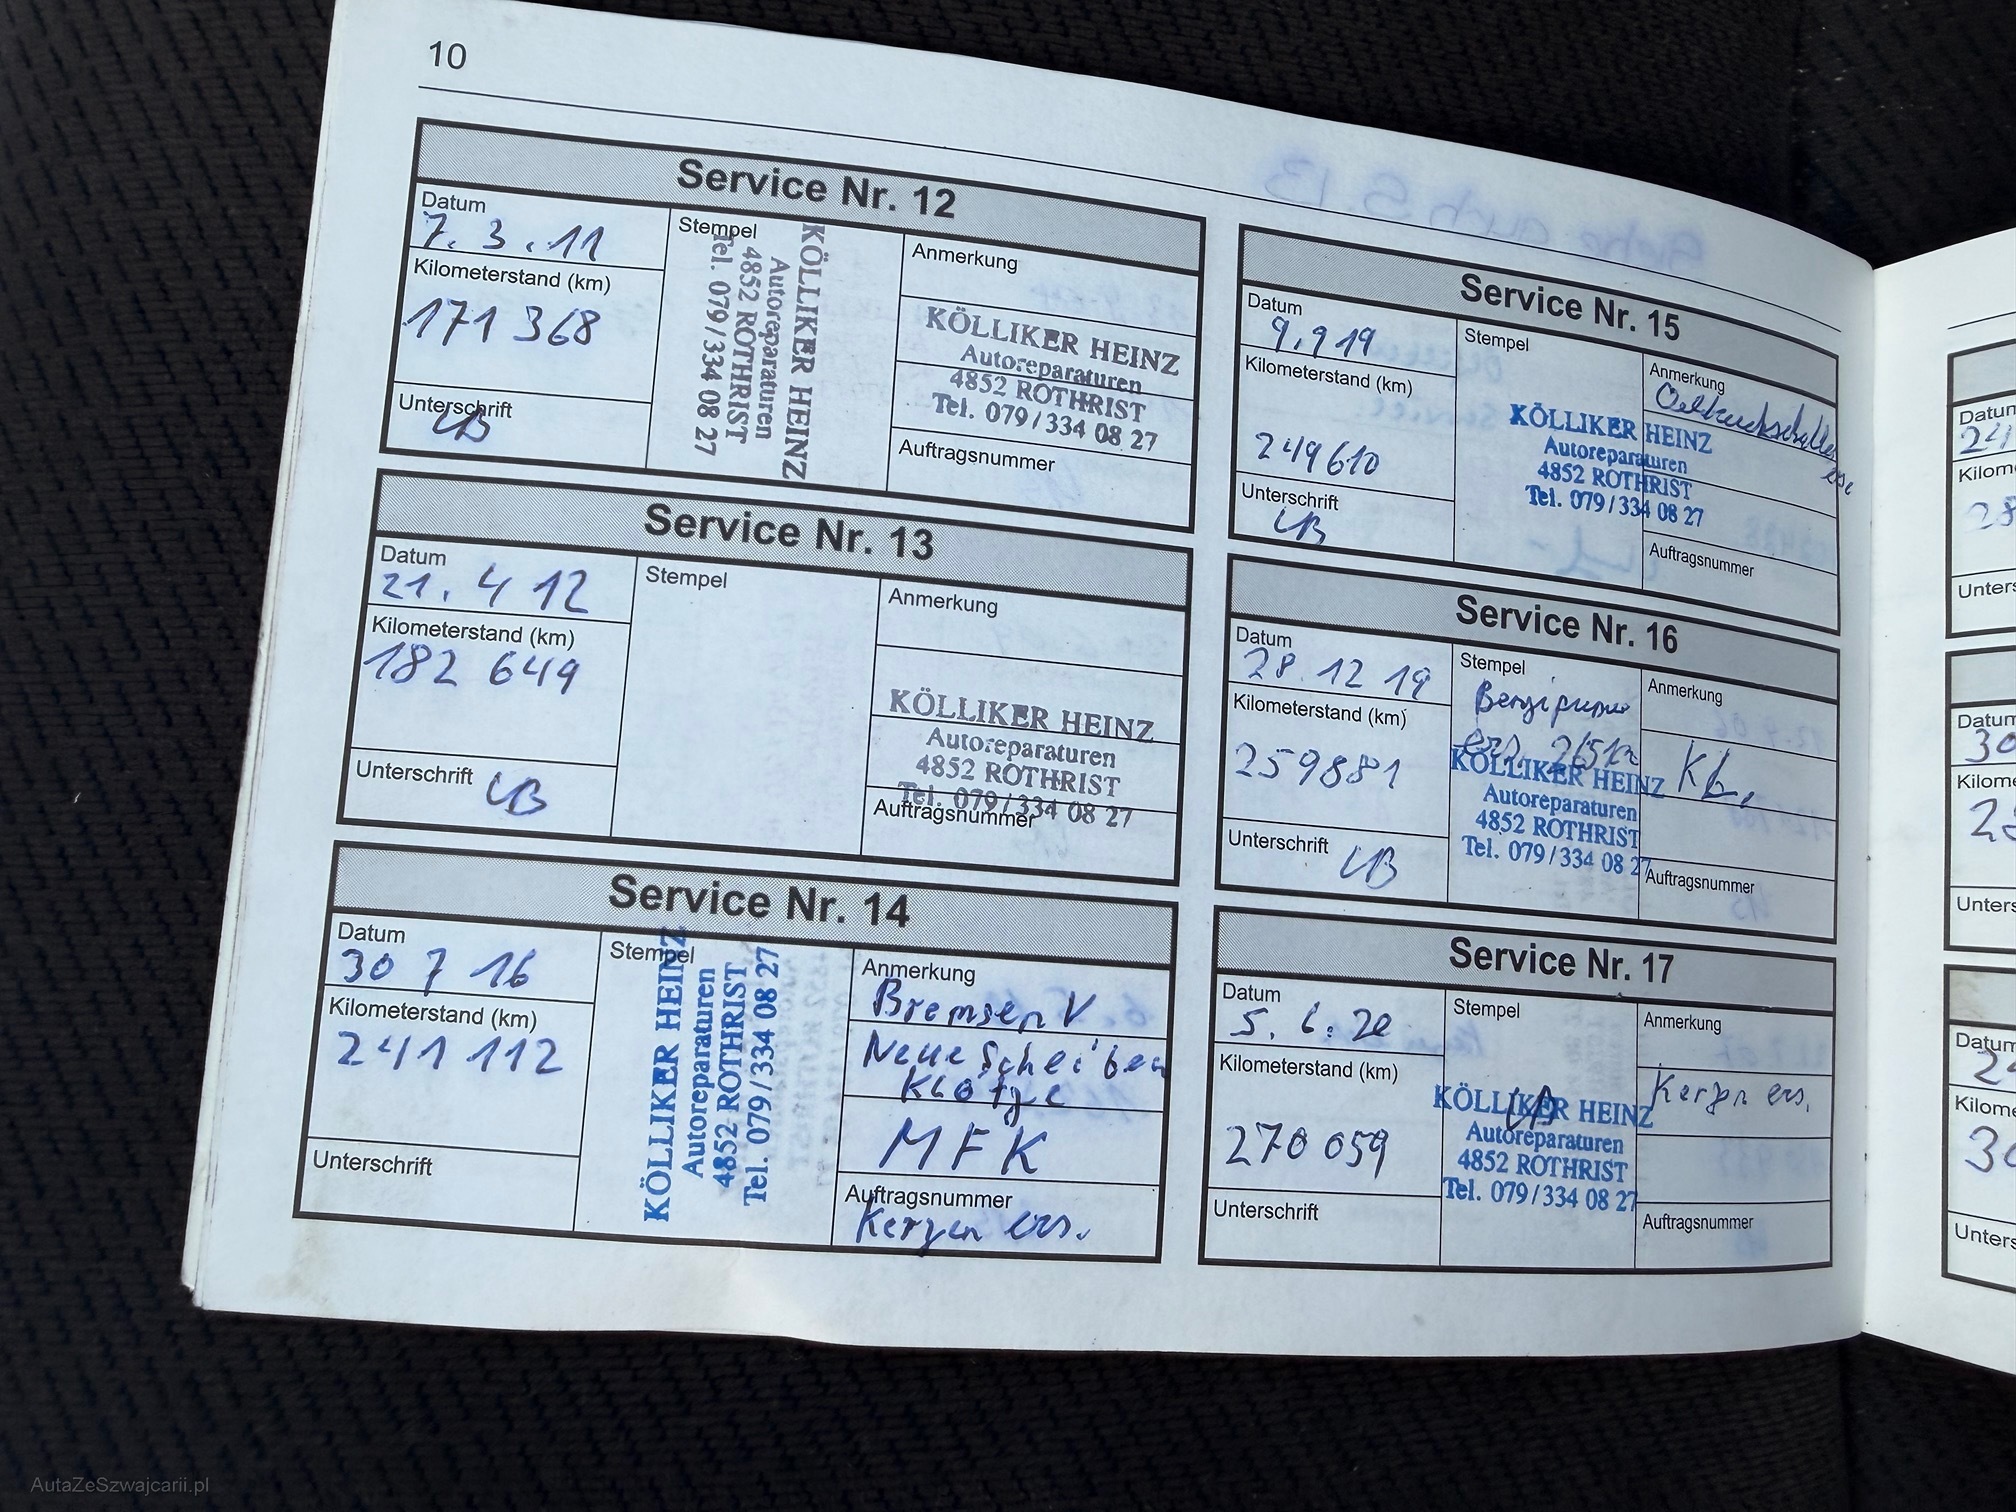 10
Service Nr. 12
Datum
7. 3. 11
Kilometerstand (km)
171 368
Unterschrift
Stempel
KÖLLIKER HEINZ
Autoreparaturen
4852 ROTHRIST
Tel. 079/334 08 27
Anmerkung
KÖLLIKER HEINZ
Autoreparaturen
4852 ROTHRIST
Tel. 079/334 08 27
Auftragsnummer
Service Nr. 13
Datum
21. 4 12
Kilometerstand (km)
182 649
Unterschrift
Stempel
Anmerkung
KÖLLIKER HEINZ
Autoreparaturen
4852 ROTHRIST
Tel. 079/334 08 27
Auftragsnummer
Service Nr. 14
Datum
30 7 16
Kilometerstand (km)
241 112
Unterschrift
Stempel
KÖLLIKER HEINZ
Autoreparaturen
4852 ROTHRIST
Tel. 079/334 08 27
Anmerkung
Bremsen V
Neue Scheiben
Klötze
MFK
Auftragsnummer
Kerzen ers.
Service Nr. 15
Datum
9.9 19
Kilometerstand (km)
249610
Unterschrift
Stempel
KÖLLIKER HEINZ
Autoreparaturen
4852 ROTHRIST
Tel. 079/334 08 27
Anmerkung
Auftragsnummer
Service Nr. 16
Datum
28. 12 19
Kilometerstand (km)
259881
Unterschrift
Stempel
ers.
KÖLLIKER HEINZ
Autoreparaturen
4852 ROTHRIST
Tel. 079/334 08 27
Anmerkung
Auftragsnummer
Service Nr. 17
Datum
5. 6. 20
Kilometerstand (km)
270 059
Unterschrift
Stempel
KÖLLIKER HEINZ
Autoreparaturen
4852 ROTHRIST
Tel. 079/334 08 27
Anmerkung
Kerzen ers.
Auftragsnummer
AutaZeSzwajcarii.pl